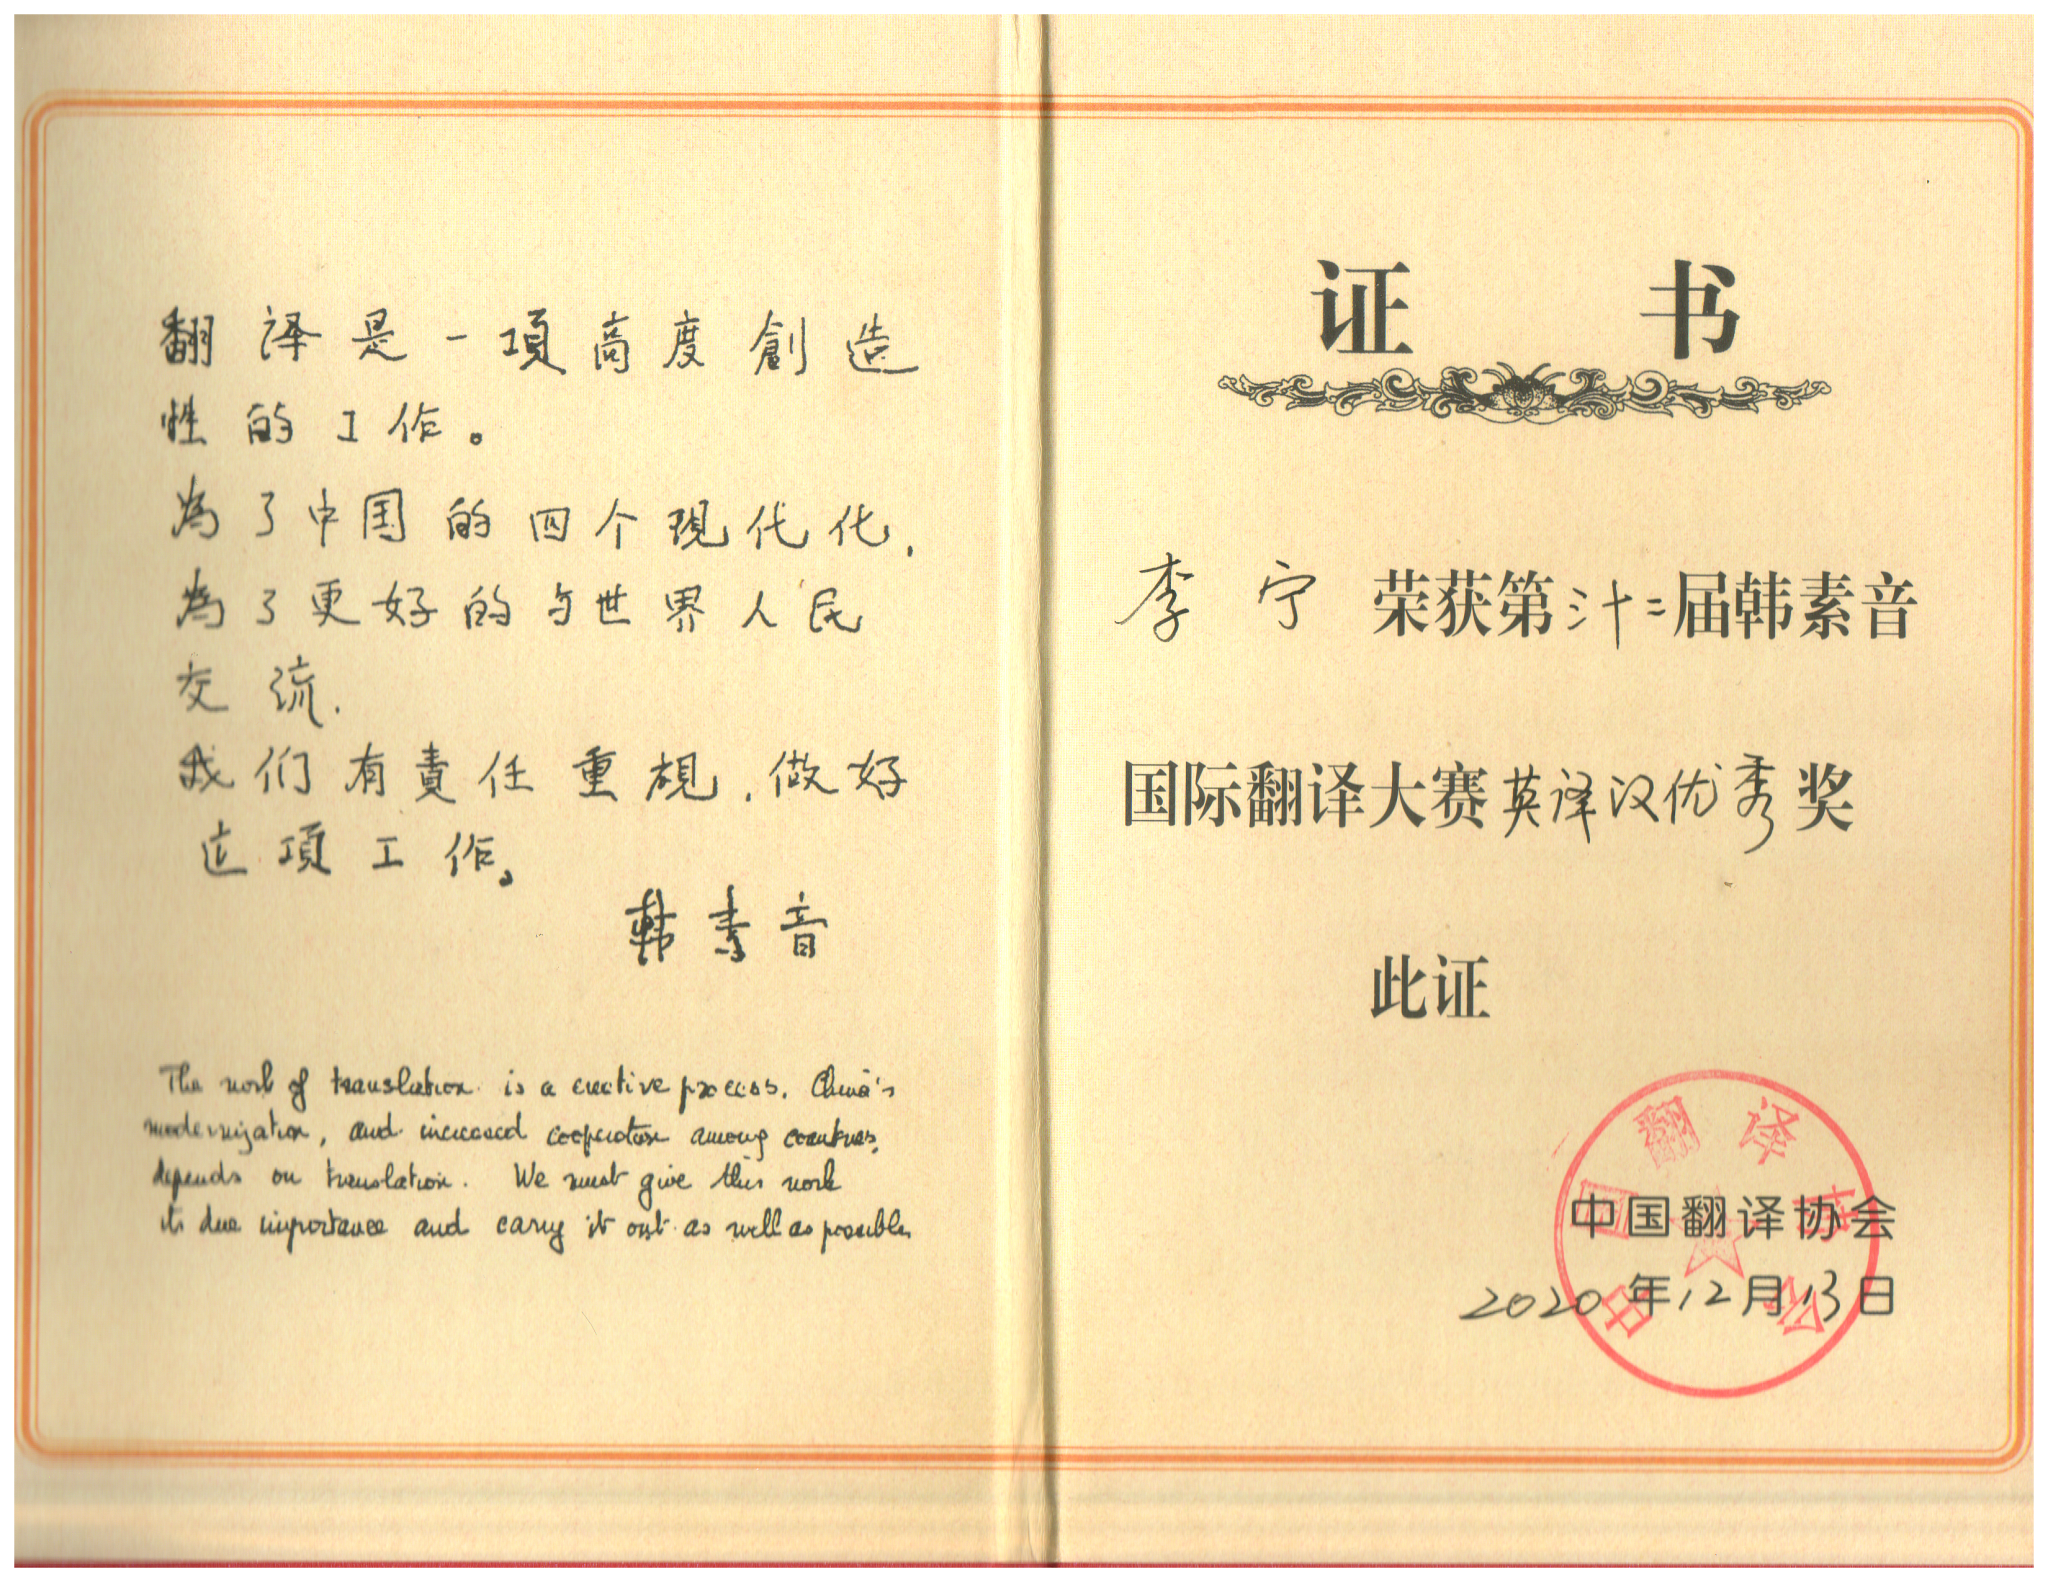 翻译是一項高度創造
性的工作。
為了中国的四个現代化,
為了更好的与世界人民
交流.
我们有責任重視,做好
这項工作。
韩素音
The work of translation is a creative process. China's
modernization, and increased cooperation among countries,
depends on translation. We must give this work
its due importance and carry it out as well as possible.
证书
李宁荣获第三十二届韩素音
国际翻译大赛英译汉优秀奖
此证
中国翻译协会
2020年12月13日
中国翻译协会